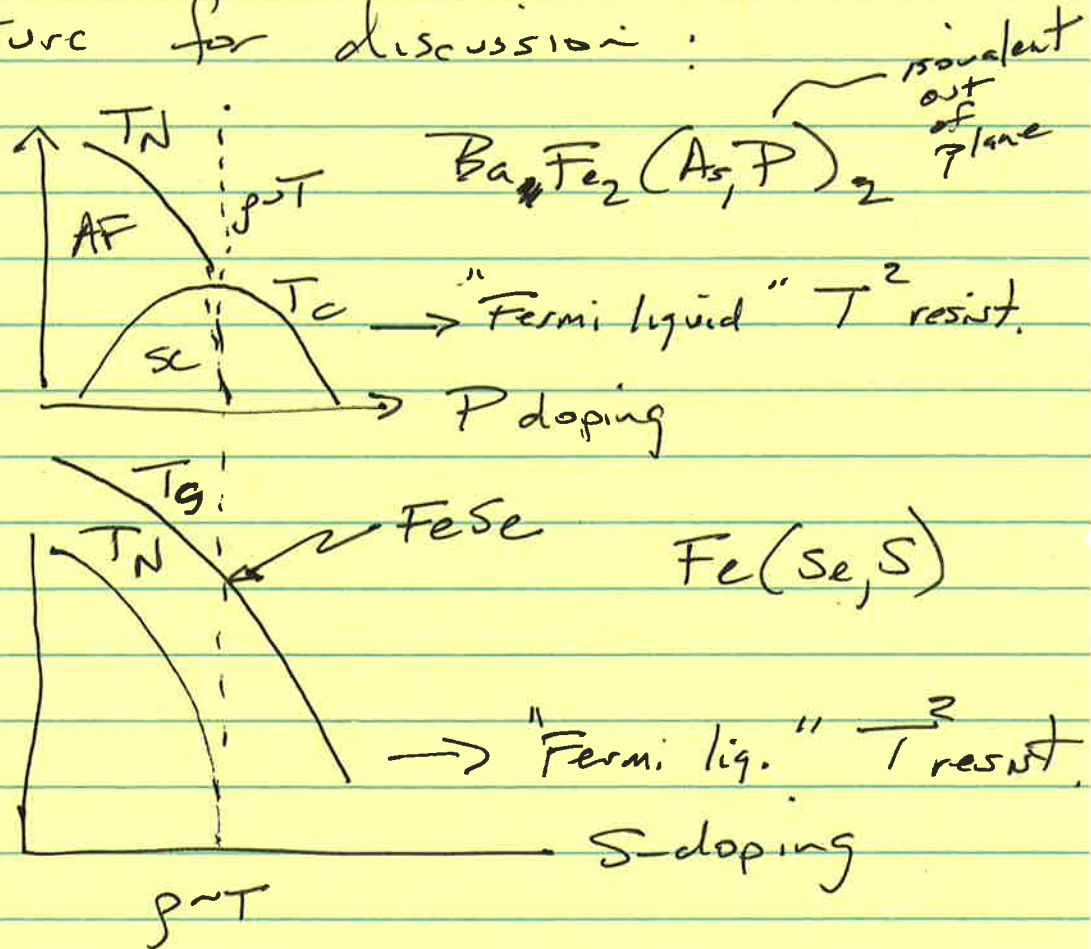 for discussion :
isovalent
out
of
plane
T_N
Ba Fe₂ (As, P)₂
ρ~T
AF
T_c
→ "Fermi liquid" T² resist.
SC
P doping
T_S
FeSe
T_N
Fe(Se, S)
→ "Fermi liq." T² resist.
S-doping
ρ~T